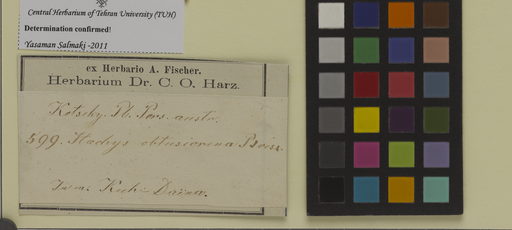 Central Herbarium of Tehran University (TUH)
Determination confirmed!
Yasaman Salmaki -2011
ex Herbario A. Fischer.
Herbarium Dr. C. O. Harz.
Kotschy. Pl. Pers. austr.
599. Stachys obtusicrena Boiss.
Kuh-Daëna.